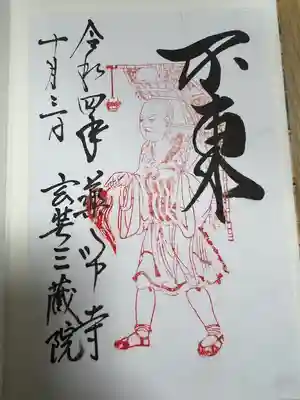 不東
薬師寺
玄奘三蔵院
令和四年
十月三日